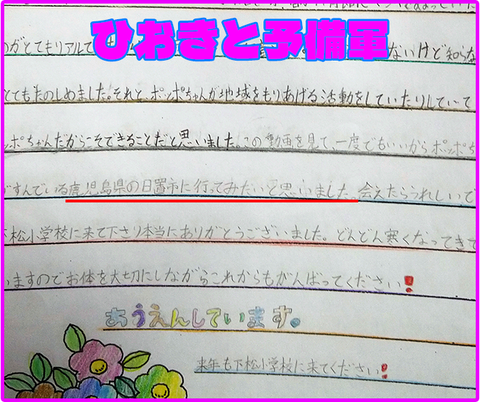 ひおきと予備軍
のがとてもリアルで
ないけど知らな
とてもたのしめました。それと、ポンポちゃんが地域をもりあげる活動をしていたりしていて
ンポちゃんだからこそできることだと思いました。この動画を見て、一度でもいいからポンポち
ですんでいる鹿児島県の日置市に行ってみたいと思いました。会えたらうれしいで
下松小学校に来て下さり本当にありがとうございました。どんどん寒くなってきて
いますのでお体を大切にしながらこれからもがんばってください!
おうえんしています。
来年も下松小学校に来てください!